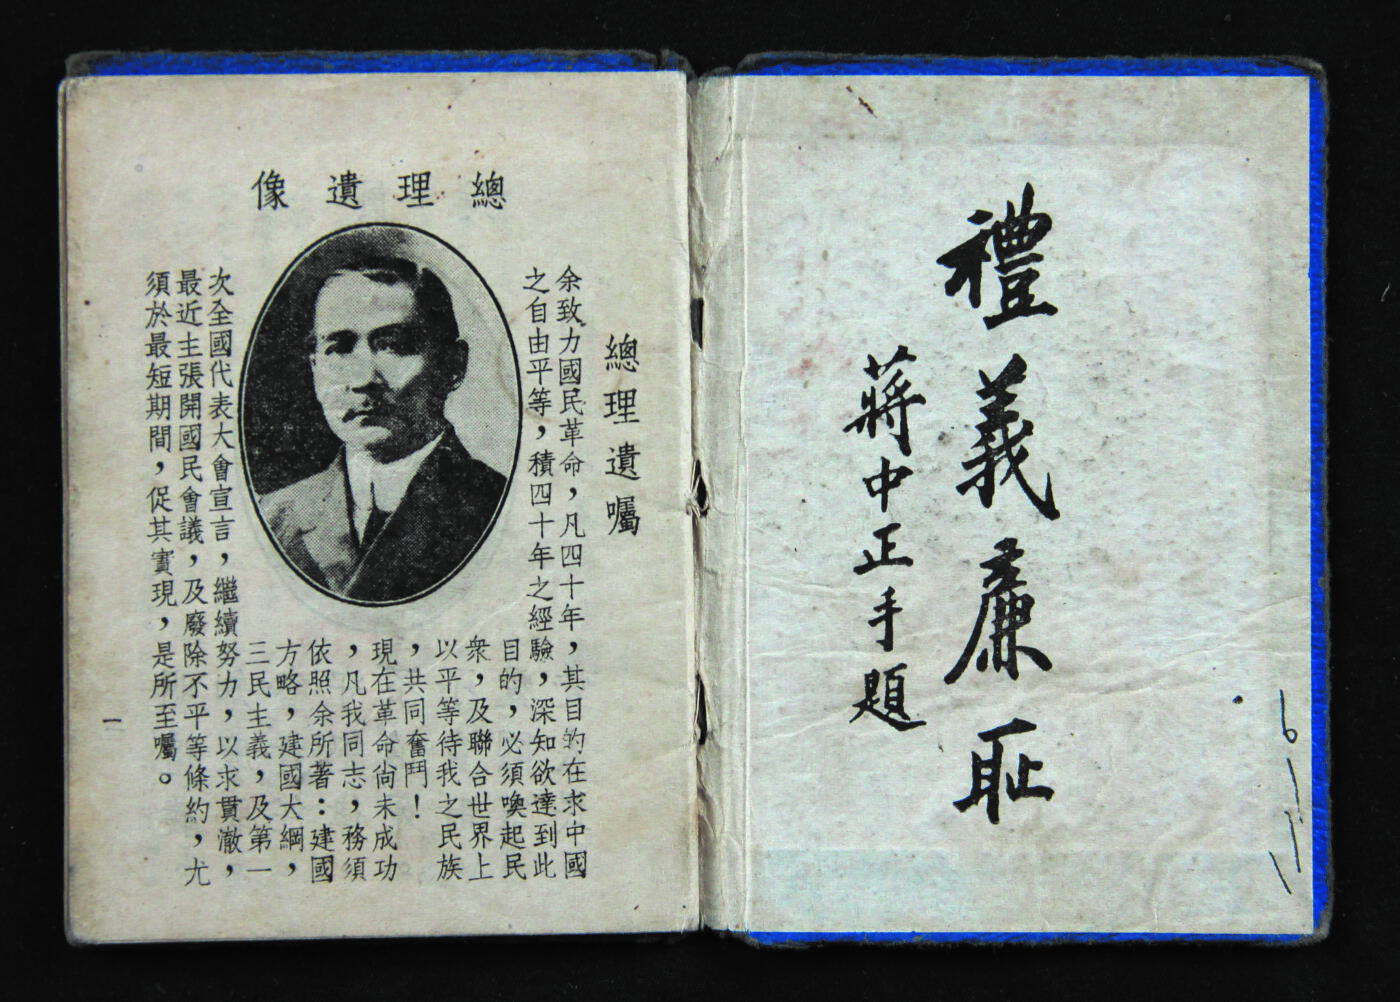 禮義廉耻
蔣中正手題
總理遺像
總理遺囑
余致力國民革命，凡四十年，其目的在求中國
之自由平等，積四十年之經驗，深知欲達到此
目的，必須喚起民
衆，及聯合世界上
以平等待我之民族
，共同奮鬥！
現在革命尚未成功
，凡我同志，務須
依照余所著：建國
方略，建國大綱，
三民主義，及第一
次全國代表大會宣言，繼續努力，以求貫澈，
最近主張開國民會議，及廢除不平等條約，尤
須於最短期間，促其實現，是所至囑。
一